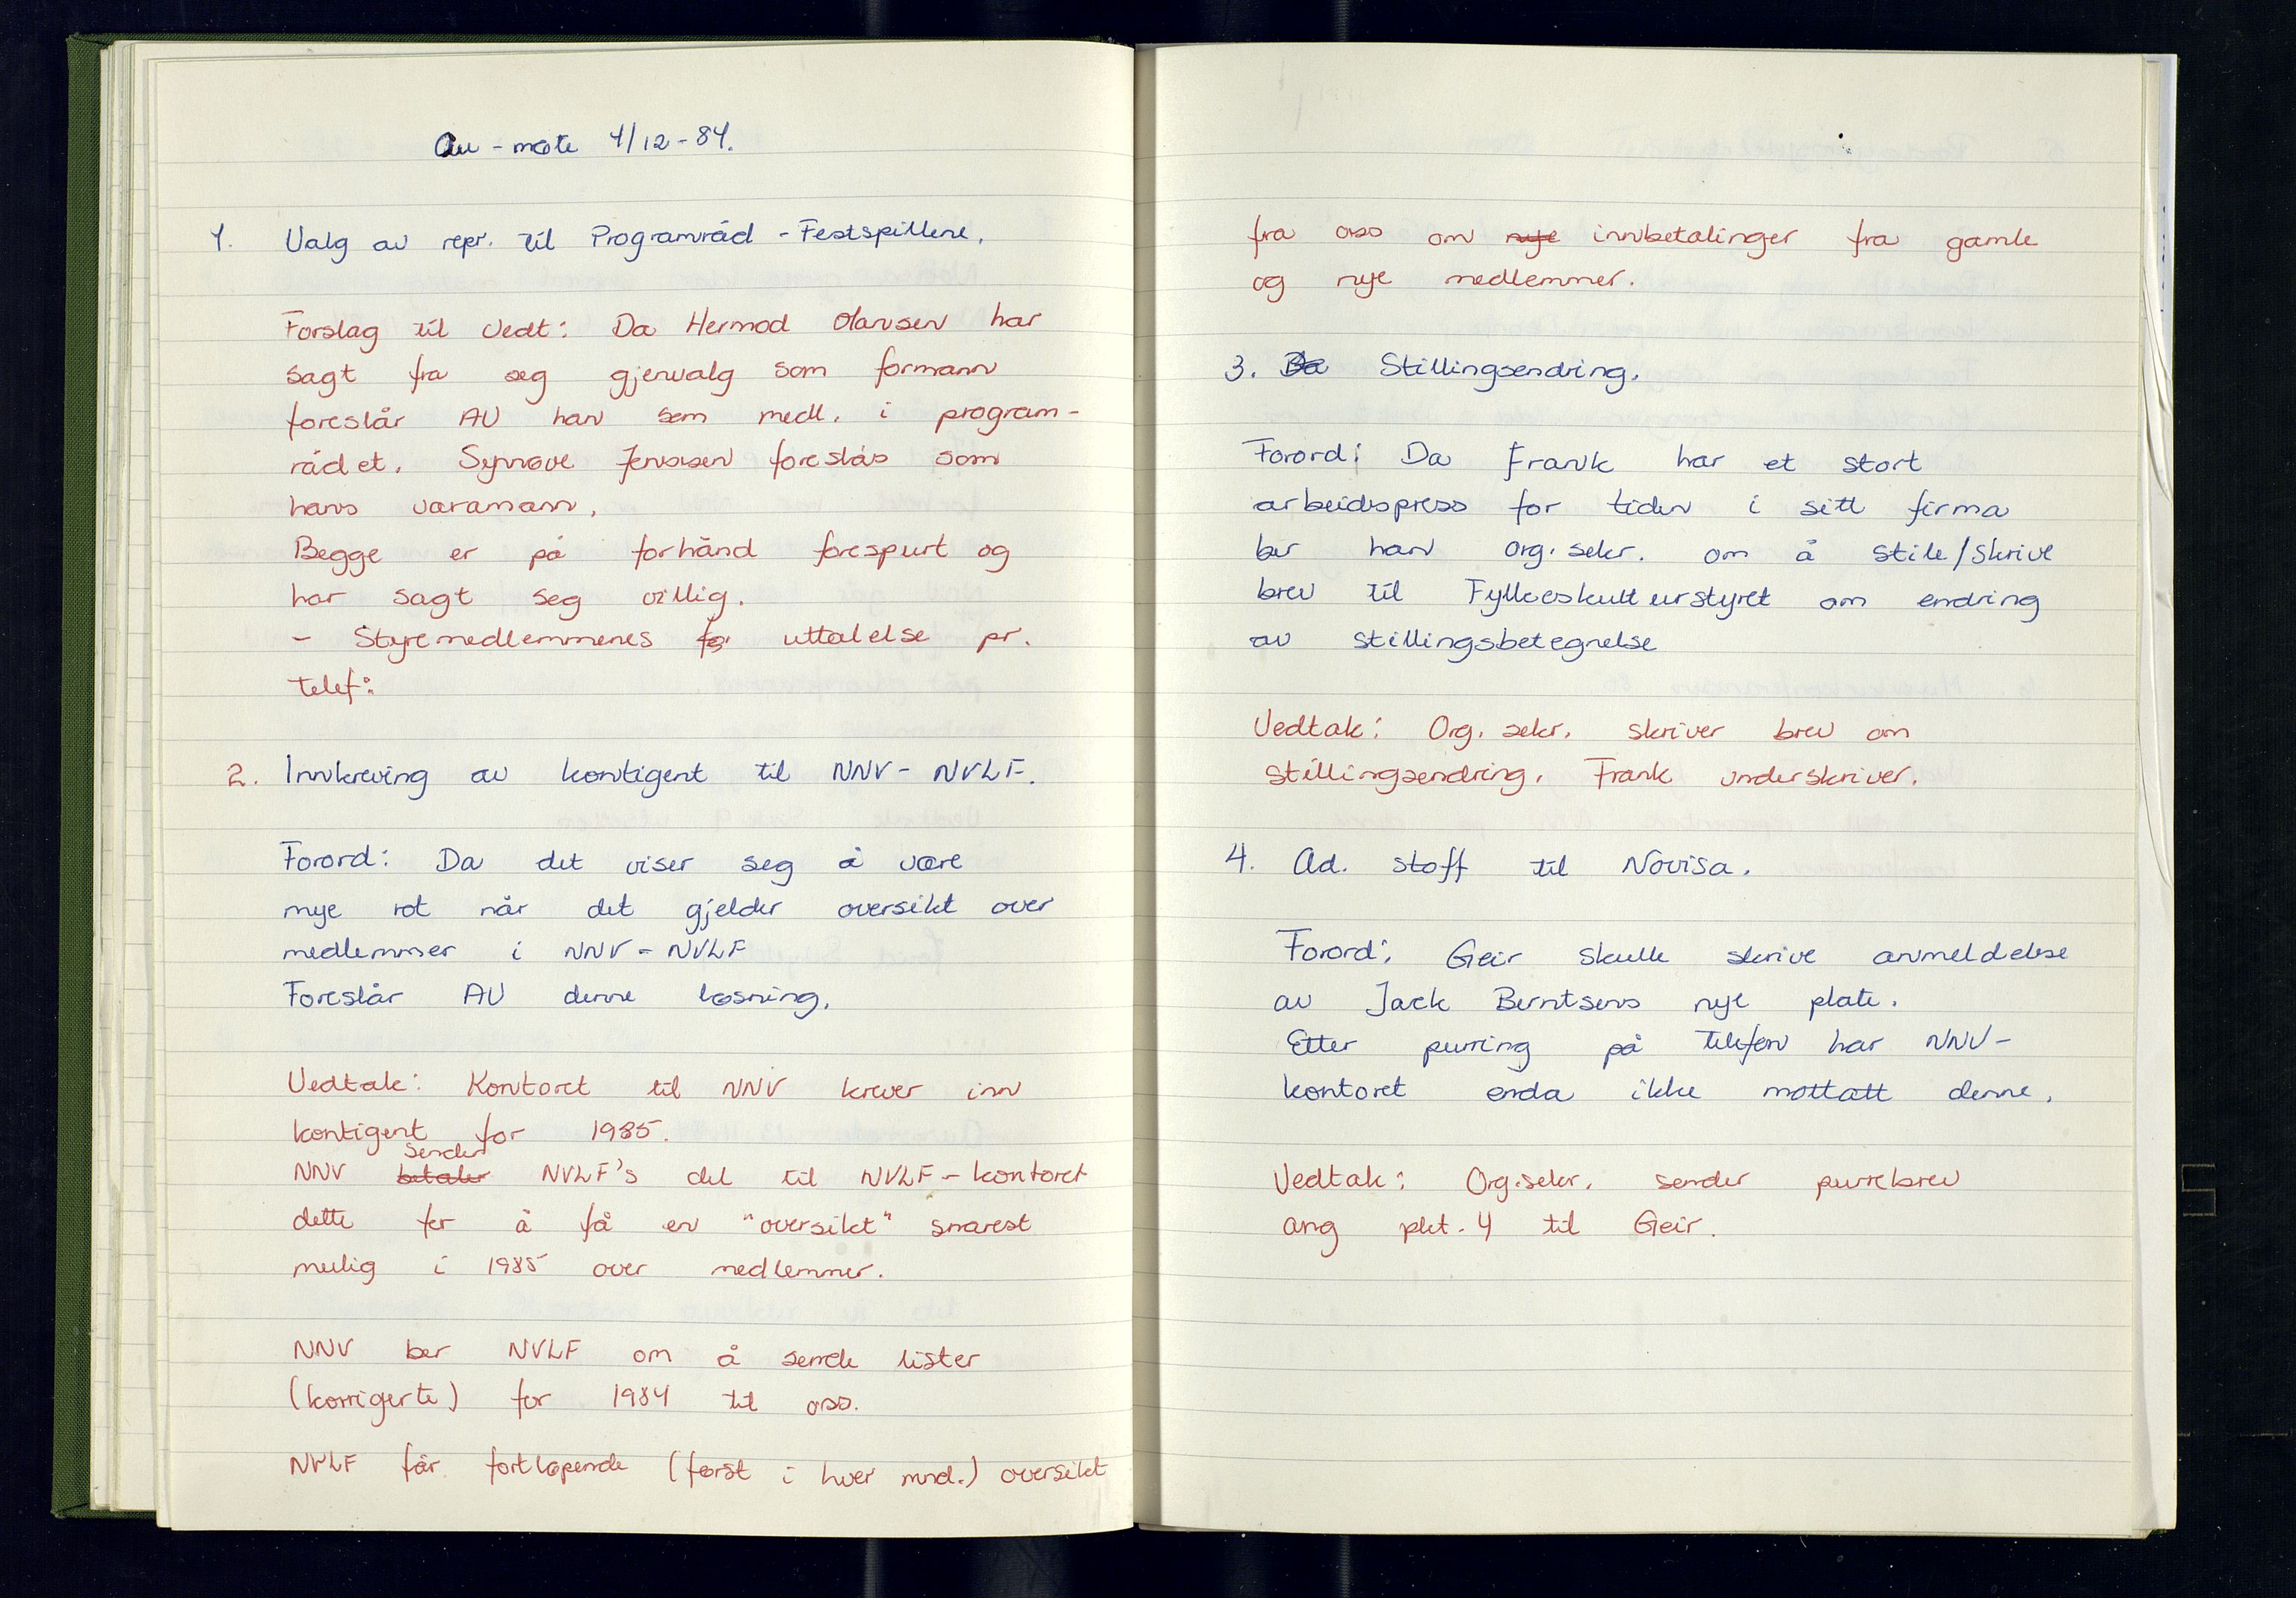 Au - møte 4/12-84.
1. Valg av repr. til Programråd - Festspillene.
Forslag til vedt: Da Hermod Olavsen har
sagt fra seg gjenvalg som formann
foreslår AU han som medl. i program-
rådet. Synnøve Jenssen foreslås som
hans varamann.
Begge er på forhånd forespurt og
har sagt seg villig.
- Styremedlemmenes uttalelse pr.
telef:
2. Innkreving av kontigent til NNV - NVLF.
Forord: Da det viser seg å være
mye rot når det gjelder oversikt over
medlemmer i NNV - NVLF
Foreslår AU denne løsning.
Vedtak: Kontoret til NNV krever inn
kontigent for 1985.
sender
NNV betaler NVLF's del til NVLF - kontoret
dette for å få en "oversikt" snarest
mulig i 1985 over medlemmer.
NNV ber NVLF om å sende lister
(korrigerte) for 1984 til oss.
NVLF får fortløpende (først i hver mnd.) oversikt
fra oss om nye innbetalinger fra gamle
og nye medlemmer.
3. Da Stillingsendring.
Forord: Da Frank har et stort
arbeidspress for tiden i sitt firma
ber han org. sekr. om å stile/skrive
brev til Fylkeskulturstyret om endring
av stillingsbetegnelse
Vedtak: Org. sekr. skriver brev om
stillingsendring. Frank underskriver.
4. Ad. stoff til Novisa.
Forord: Geir skulle skrive anmeldelse
av Jack Berntsens nye plate.
Etter purring på telefon har NNV-
kontoret enda ikke mottatt denne.
Vedtak: Org.sekr. sender purrebrev
ang pkt. 4 til Geir.